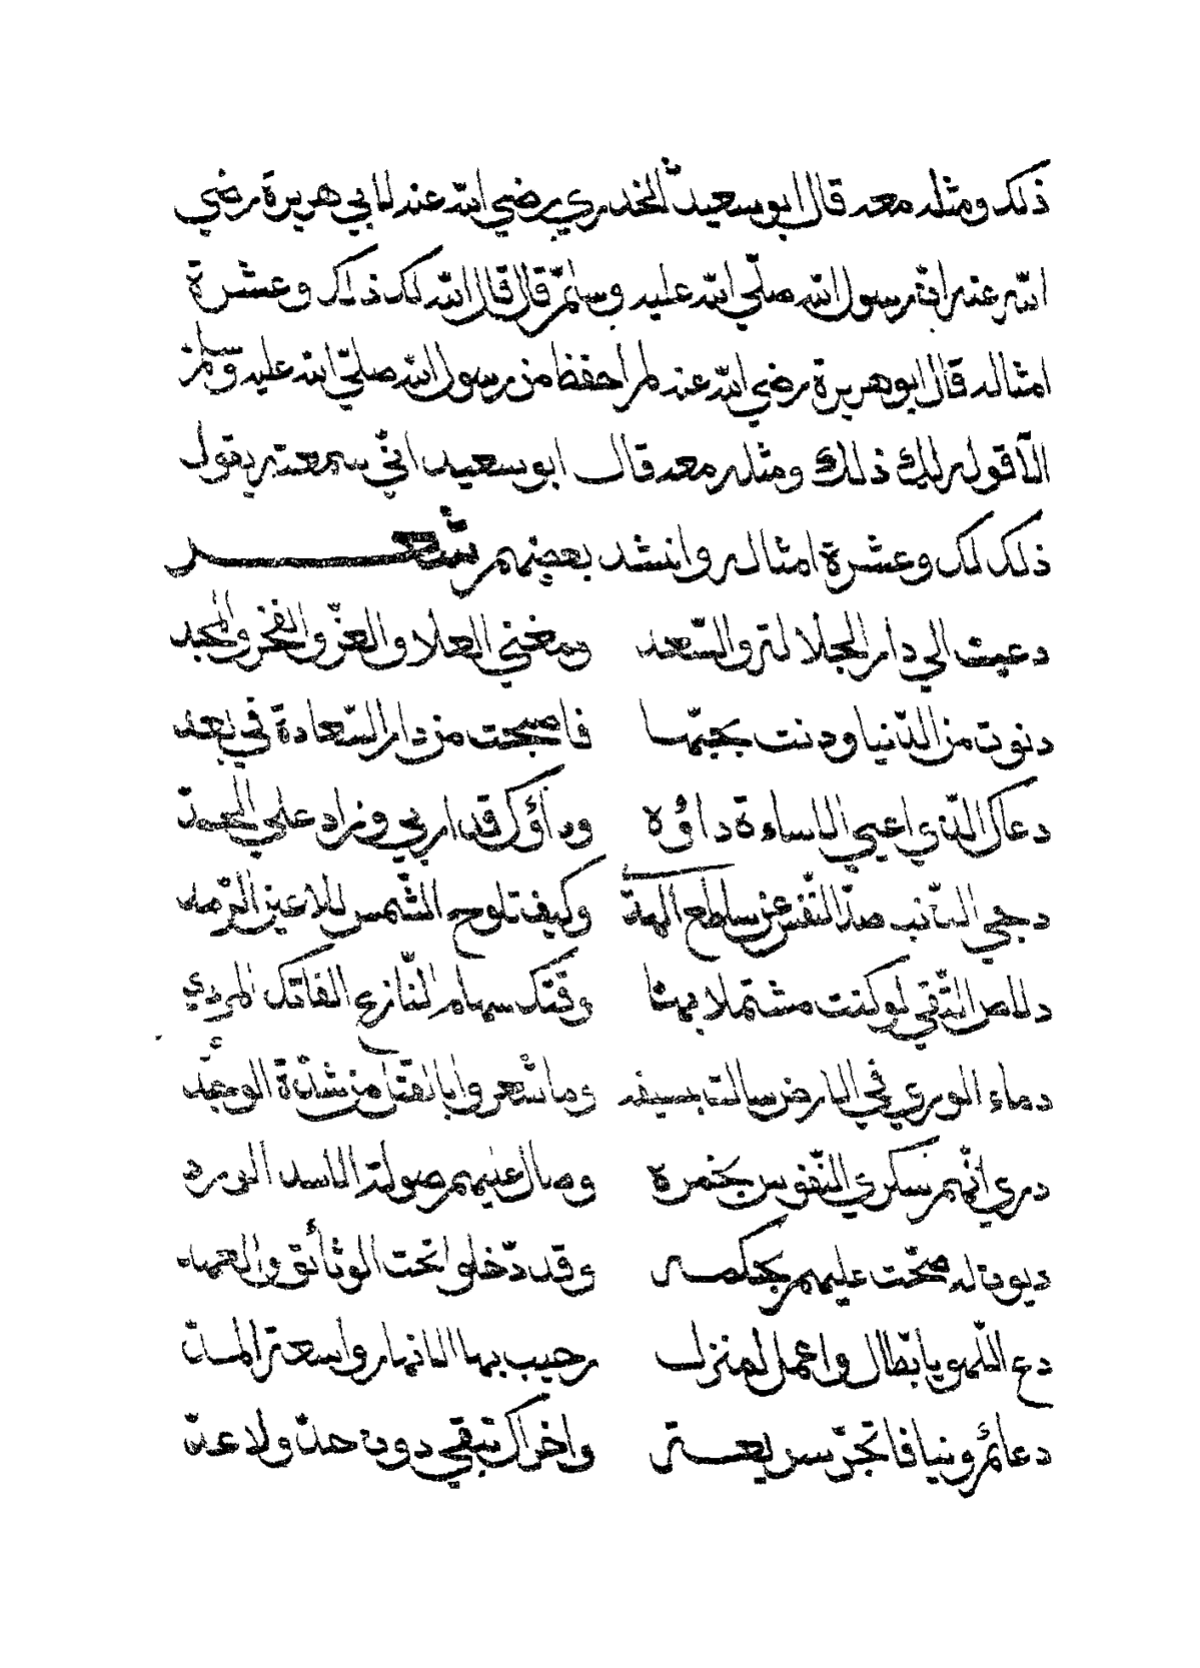 ذلك ومثله معه قال ابو سعيد الخدري رضي الله عنه لابي هريرة رضي
الله عنه ان رسول الله صلّي الله عليه وسلّم قال قال الله لك ذلك وعشرة
امثاله قال ابو هريرة رضي الله عنه لم احفظ من رسول الله صلّي الله عليه وسلّم
الّا قوله لك ذلك ومثله معه قال ابو سعيد انّي سمعته يقول
ذلك لك وعشرة امثاله وانشد بعضهم شعر
دعيت الي دار الجلالة والسّعد ومغني العلا والعزّ والفخر والمجد
دنوت من الدّنيا ودنت بحبّها فاصبحت من دار السّعادة في بعد
دعاك الذي اعيي الاساءة داؤه وداؤك قد اربي وزاد علي الحدّ
دجي الذّنب صدّ النّفس عن ساطع الهدّ وكيف تلوح الشّمس للاعين الرّمد
دلاص التّقي لو كنت مشتملا بها وقتك سهام النّازع الفاتك المردي
دماء الوري في الارض سالت بسيفه وما شعروا بالقتل من شدّة الوجد
دري انّهم سكري النّفوس بخمرة وصال عليهم صولة الاسد الورد
ديون له صحّت عليهم بحكمه وقد دخلوا تحت الوثائق والعهد
دع اللّهو يا بطّال واعمل لمنزل رحيب بها الانهار واسعة المدّ
دعائم دنيا فاتجرّ سريعة واخراك تبقي دون حدّ ولا عدّ